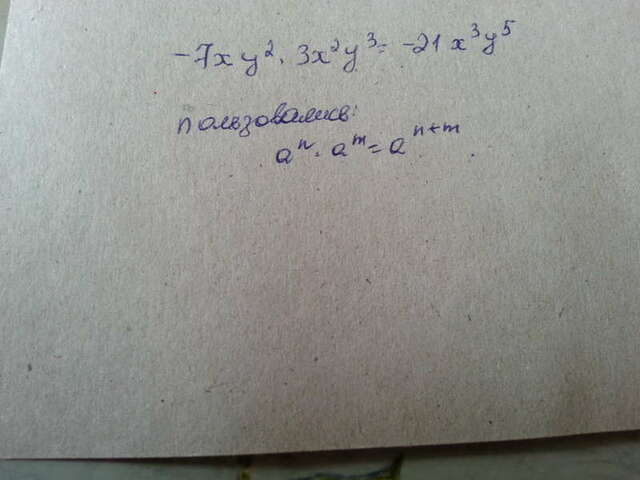 -7xy²· 3x²y³= -21x³y⁵
пользовались:
aⁿ· aᵐ= aⁿ⁺ᵐ